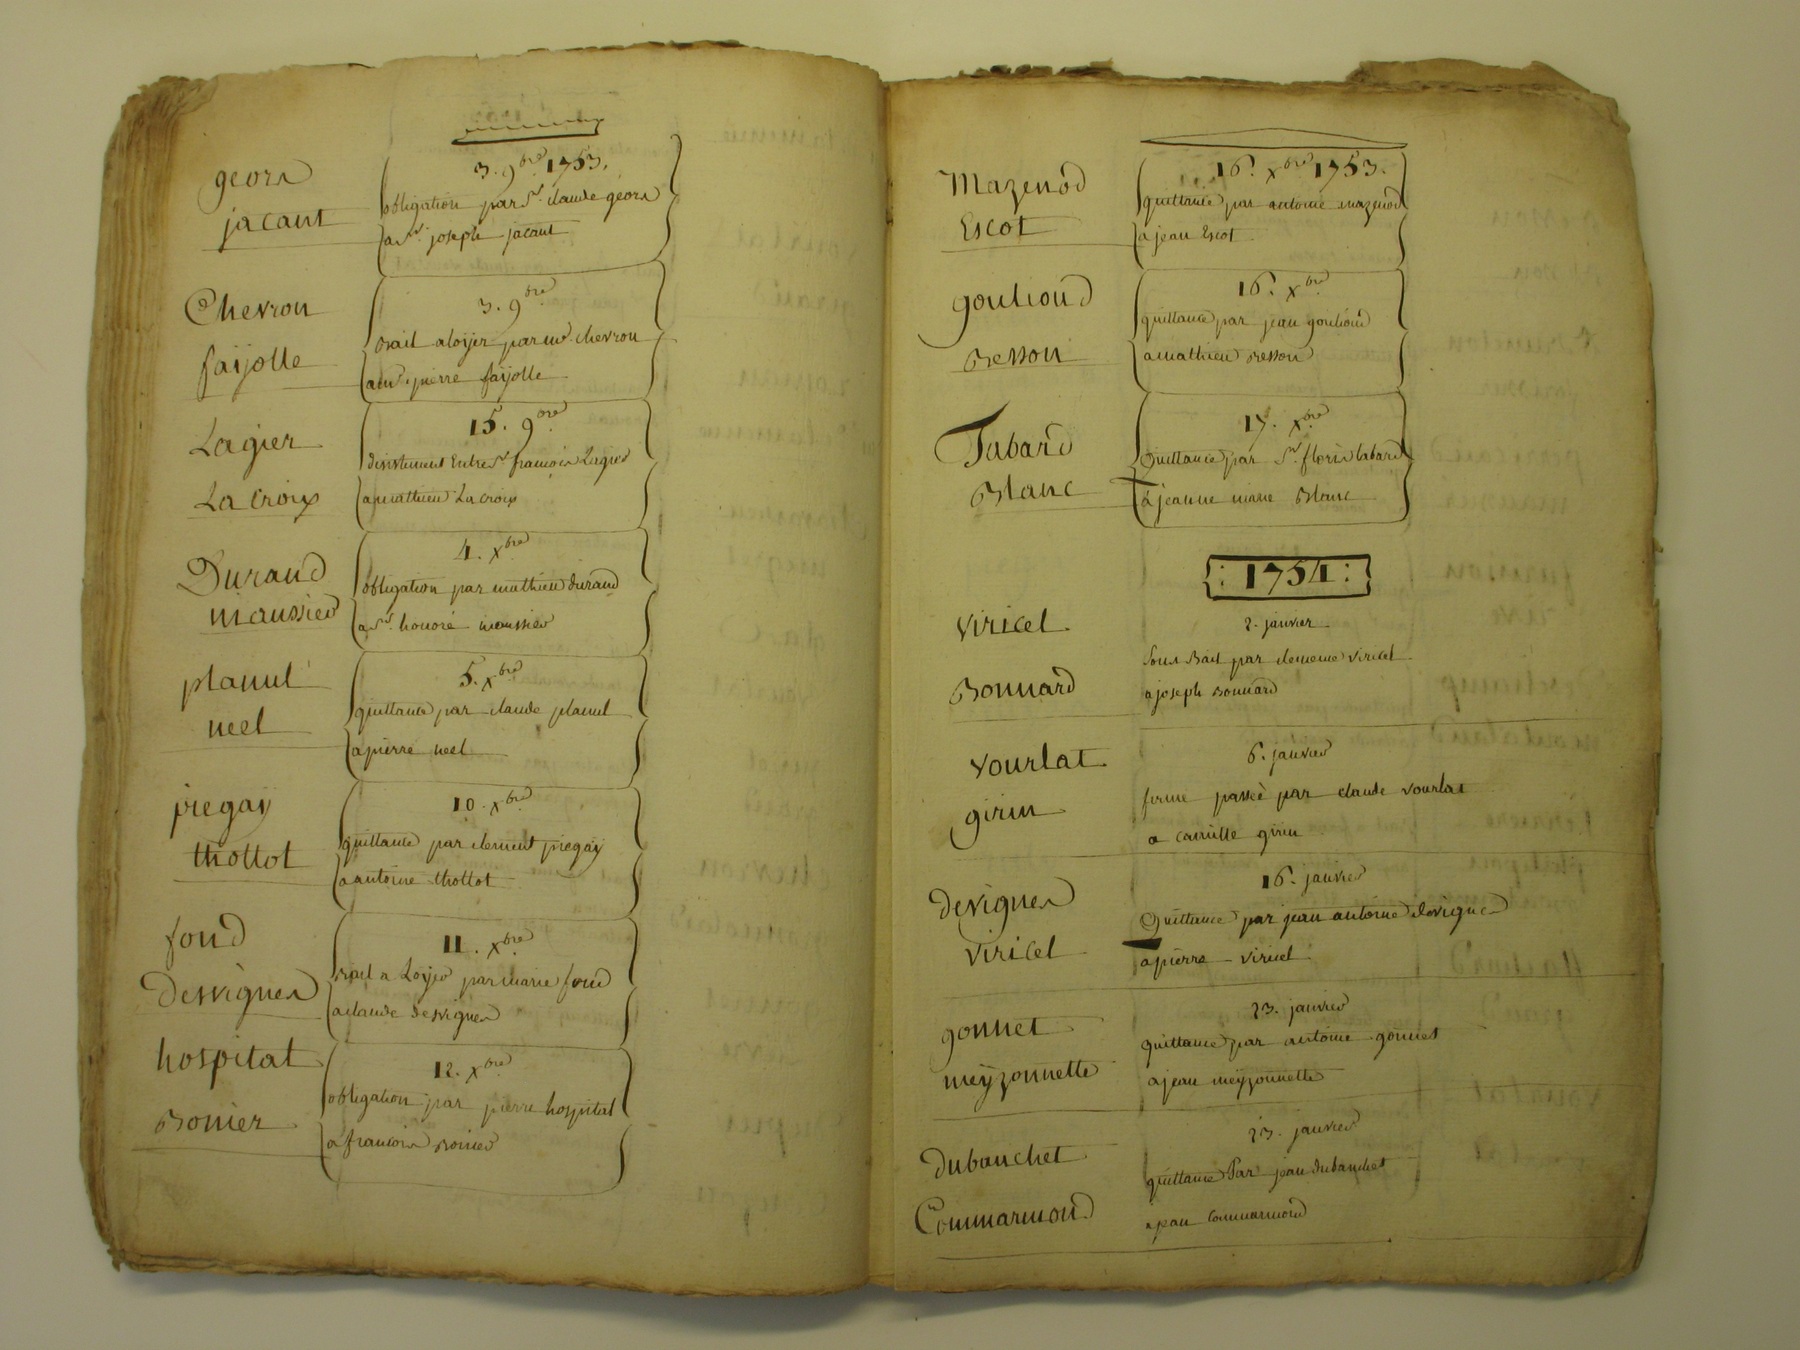 geors
jacant
3. 9bre 1753.
obligation par Sr. claude geors
a Sr. joseph jacant
Chevron
faÿjolle
3. 9bre
Bail a loÿer par mr. chevron
a mr. pierre faÿjolle
Lagier
La croix
15. 9bre
desistement Entre Sr. francois Lagier
a mathieu La croix
Durand
maussier
4. Xbre
obligation par mathieu durand
a Sr. honoré maussier
planul
neel
5. Xbre
quittance par claude planul
a pierre neel
piegaÿ
thollot
10. Xbre
quittance par clement piegaÿ
a antoine thollot
fond
Desvignes
11. Xbre
Bail a Loÿer par marie fond
a claude desvignes
hospital
Bonier
12. Xbre
obligation par pierre hospital
a francois Bonier
Mazenod
Escot
16. Xbre 1753.
quittance par antoine mazenod
a jean Escot
gouliond
Besson
16. Xbre
quittance par jean gouliond
a mathieu Besson
Tabard
Blanc
17. Xbre
Quittance par Sr. floris tabard
a jeanne marie Blanc
: 1754 :
Viricel
Bonnard
2. janvier
Sous Bail par clemence viricel
a joseph Bonnard
Vourlat
girin
6. janvier
ferme passée par claude vourlat
a camille girin
devignes
viricel
16. janvier
Quittance par jean antoine devignes
a pierre viricel
gonnet
meÿzonnette
23. janvier
quittance par antoine gonnet
a jean meÿzonnette
dubanchet
Commarmond
23. janvier
quittance Par jean dubanchet
a jean Commarmond